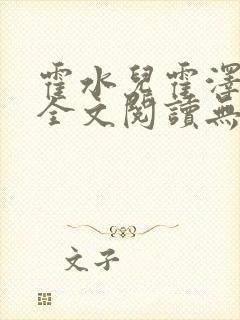 霍水兒霍澤
全文閱讀無
文子